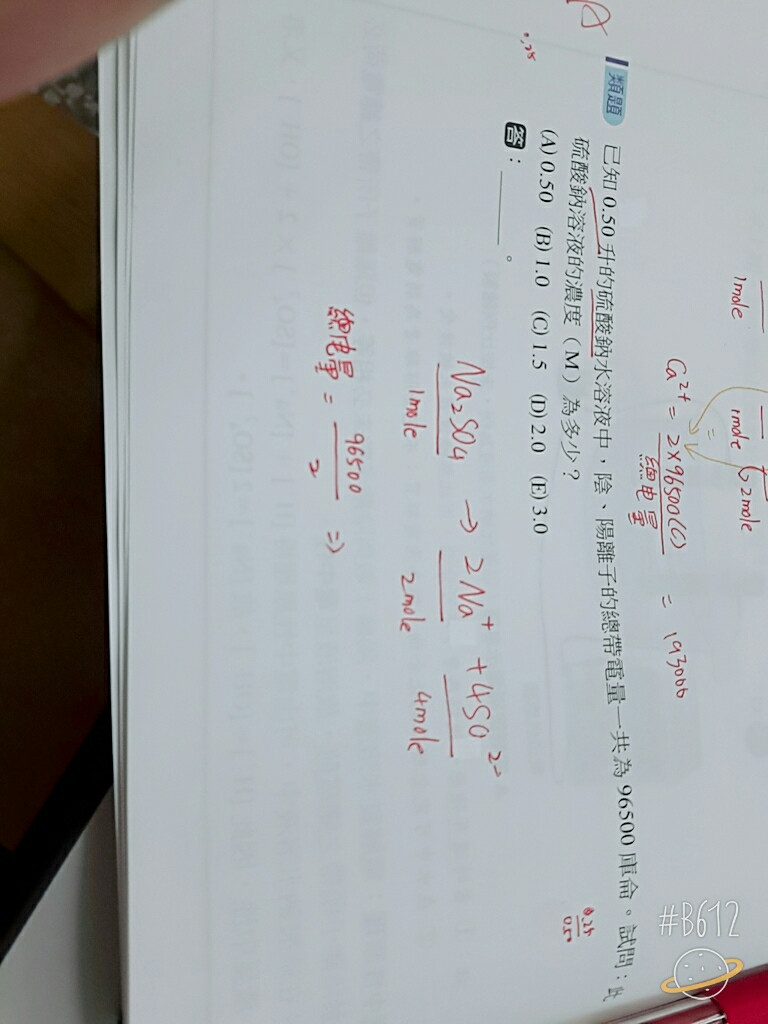 1mole
1mole
2mole
Ca²⁺ = 2×96500(C) = 193000
總電量
A
類題 已知 0.50 升的硫酸鈉水溶液中，陰、陽離子的總帶電量一共為 96500 庫侖。試問：此
硫酸鈉溶液的濃度（M）為多少？
(A) 0.50 (B) 1.0 (C) 1.5 (D) 2.0 (E) 3.0
0.25
0.50
答：＿＿＿。
0.25
Na₂SO₄ → 2Na⁺ + 4SO²⁻
1mole 2mole 4mole
總電量 = 96500/2 ⇒
#B612